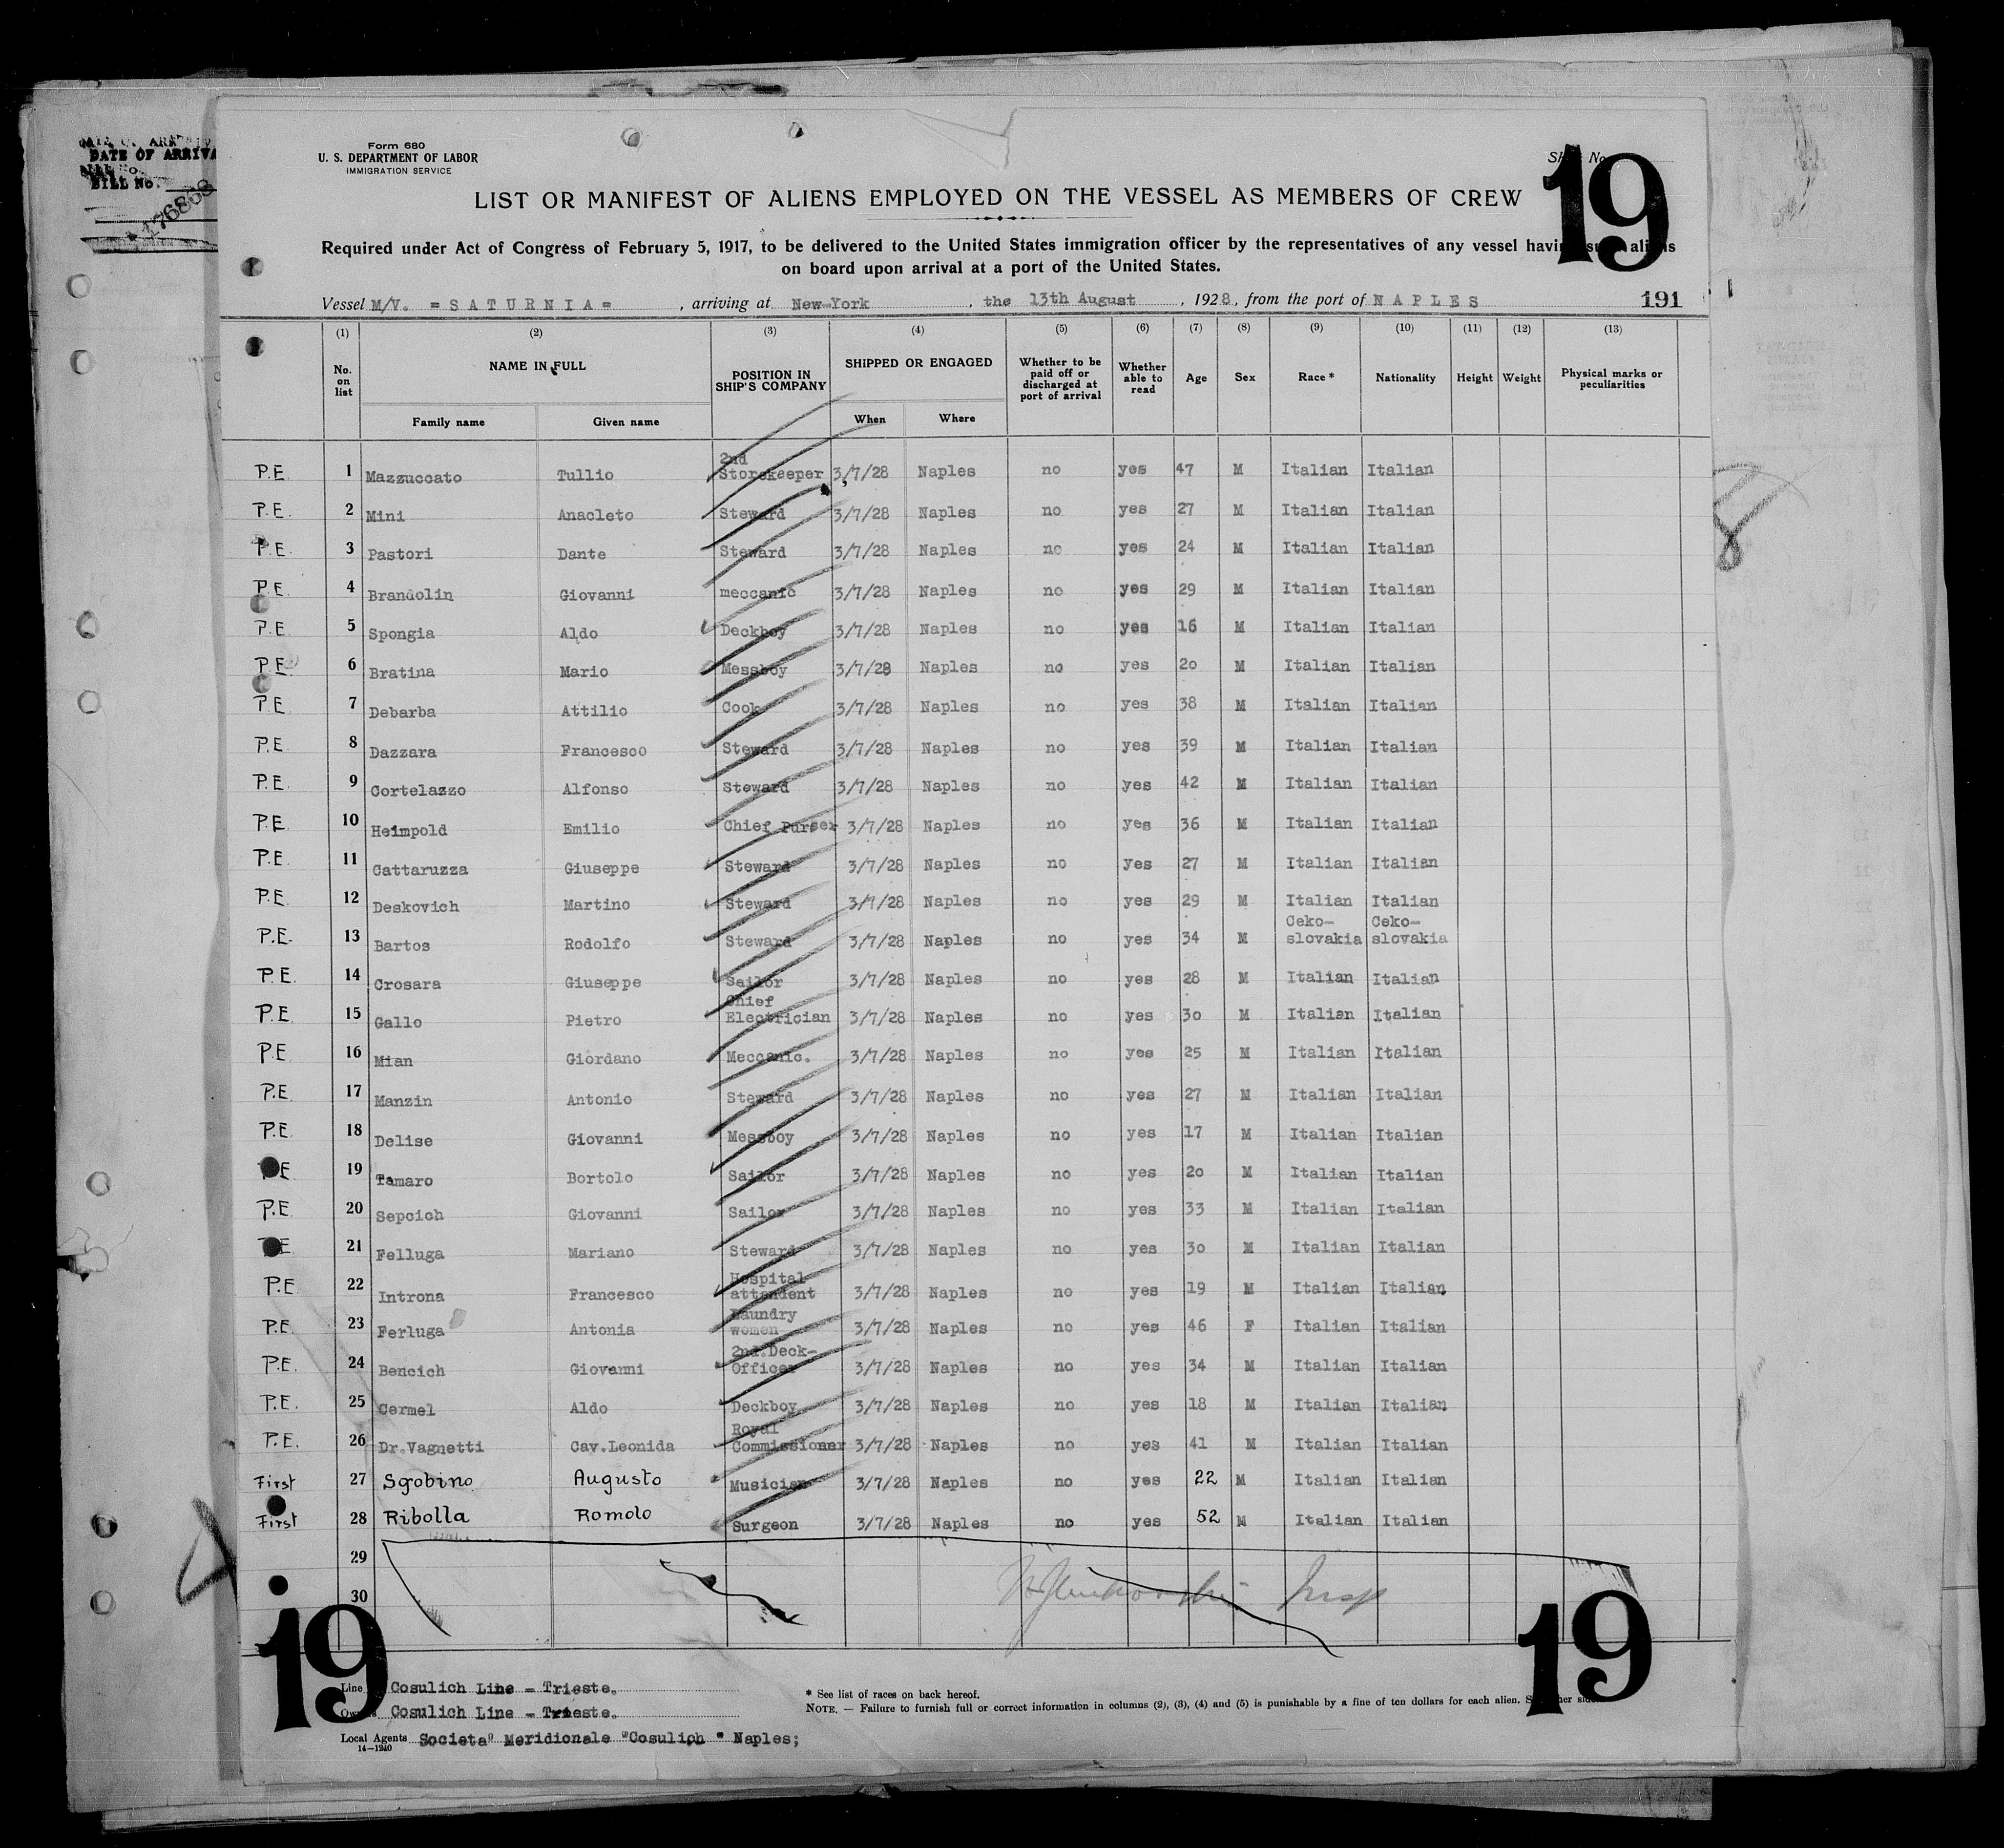 DATE OF ARRIVA
BILL No.
176868
Form 680
U. S. DEPARTMENT OF LABOR
IMMIGRATION SERVICE
19
LIST OR MANIFEST OF ALIENS EMPLOYED ON THE VESSEL AS MEMBERS OF CREW
Required under Act of Congress of February 5, 1917, to be delivered to the United States immigration officer by the representatives of any vessel having such aliens
on board upon arrival at a port of the United States.
Vessel M/V. = SATURNIA = , arriving at New-York , the 13th August , 1928, from the port of NAPLES 191
(1) (2) (3) (4) (5) (6) (7) (8) (9) (10) (11) (12) (13)
No. on list NAME IN FULL POSITION IN SHIP'S COMPANY SHIPPED OR ENGAGED Whether to be paid off or discharged at port of arrival Whether able to read Age Sex Race * Nationality Height Weight Physical marks or peculiarities
Family name Given name When Where
P.E. 1 Mazzuccato Tullio 2nd Storekeeper 3/7/28 Naples no yes 47 M Italian Italian
P.E. 2 Mini Anacleto Steward 3/7/28 Naples no yes 27 M Italian Italian
P.E. 3 Pastori Dante Steward 3/7/28 Naples no yes 24 M Italian Italian
P.E. 4 Brandolin Giovanni meccanic 3/7/28 Naples no yes 29 M Italian Italian
P.E. 5 Spongia Aldo Deckboy 3/7/28 Naples no yes 16 M Italian Italian
P.E. 6 Bratina Mario Messboy 3/7/28 Naples no yes 20 M Italian Italian
P.E 7 Debarba Attilio Cook 3/7/28 Naples no yes 38 M Italian Italian
P.E 8 Dazzara Francesco Steward 3/7/28 Naples no yes 39 M Italian Italian
P.E. 9 Cortelazzo Alfonso Steward 3/7/28 Naples no yes 42 M Italian Italian
P.E 10 Heimpold Emilio Chief Purser 3/7/28 Naples no yes 36 M Italian Italian
P.E. 11 Cattaruzza Giuseppe Steward 3/7/28 Naples no yes 27 M Italian Italian
P.E. 12 Deskovich Martino Steward 3/7/28 Naples no yes 29 M Italian Italian
P.E. 13 Bartos Rodolfo Steward 3/7/28 Naples no yes 34 M Ceko-slovakia Ceko-slovakia
P.E. 14 Crosara Giuseppe Sailor 3/7/28 Naples no yes 28 M Italian Italian
P.E. 15 Gallo Pietro Chief Electrician 3/7/28 Naples no yes 30 M Italian Italian
P.E 16 Mian Giordano Meccanic. 3/7/28 Naples no yes 25 M Italian Italian
P.E. 17 Manzin Antonio Steward 3/7/28 Naples no yes 27 M Italian Italian
P.E. 18 Delise Giovanni Messboy 3/7/28 Naples no yes 17 M Italian Italian
P.E. 19 Tamaro Bortolo Sailor 3/7/28 Naples no yes 20 M Italian Italian
P.E. 20 Sepcich Giovanni Sailor 3/7/28 Naples no yes 33 M Italian Italian
P.E. 21 Felluga Mariano Steward 3/7/28 Naples no yes 30 M Italian Italian
P.E 22 Introna Francesco Hospital attendent 3/7/28 Naples no yes 19 M Italian Italian
P.E. 23 Ferluga Antonia Laundry women 3/7/28 Naples no yes 46 F Italian Italian
P.E. 24 Bencich Giovanni 2nd.Deck-Officer 3/7/28 Naples no yes 34 M Italian Italian
P.E. 25 Cermel Aldo Deckboy 3/7/28 Naples no yes 18 M Italian Italian
P.E. 26 Dr.Vagnetti Cav.Leonida Royal Commissioner 3/7/28 Naples no yes 41 M Italian Italian
First 27 Sgobino Augusto Musician 3/7/28 Naples no yes 22 M Italian Italian
First 28 Ribolla Romolo Surgeon 3/7/28 Naples no yes 52 M Italian Italian
29
30
Insp
19 19
Line Cosulich Line - Trieste.
Owners Cosulich Line - Trieste.
Local Agents Societa" Meridionale "Cosulich " Naples;
14-1240
* See list of races on back hereof.
NOTE. — Failure to furnish full or correct information in columns (2), (3), (4) and (5) is punishable by a fine of ten dollars for each alien. See other side.